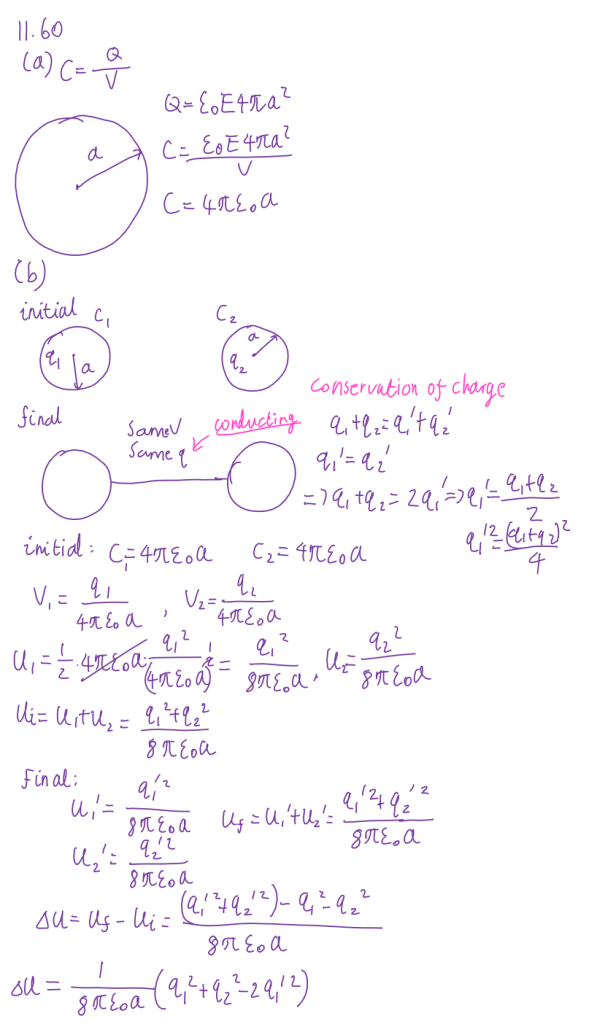 11.60
(a) C = Q/V
a
Q = ε₀E4πa²
C = ε₀E4πa²/V
C = 4πε₀a
(b)
initial C₁ C₂
q₁ a q₂ a
Conservation of charge
final
same V conducting q₁+q₂=q₁'+q₂'
same q q₁'=q₂'
=> q₁+q₂= 2q₁' => q₁' = (q₁+q₂)/2
q₁'² = (q₁+q₂)²/4
initial: C₁=4πε₀a C₂=4πε₀a
V₁ = q₁/4πε₀a , V₂= q₂/4πε₀a
U₁ = 1/2 · 4πε₀a · q₁²/(4πε₀a)² = q₁²/8πε₀a , U₂= q₂²/8πε₀a
Ui = U₁+U₂ = q₁²+q₂²/8πε₀a
Final:
U₁' = q₁'²/8πε₀a Uf = U₁'+U₂' = q₁'²+q₂'²/8πε₀a
U₂' = q₂'²/8πε₀a
ΔU = Uf - Ui = (q₁'²+q₂'²) - q₁² - q₂²/8πε₀a
ΔU = 1/8πε₀a (q₁²+q₂²-2q₁'²)